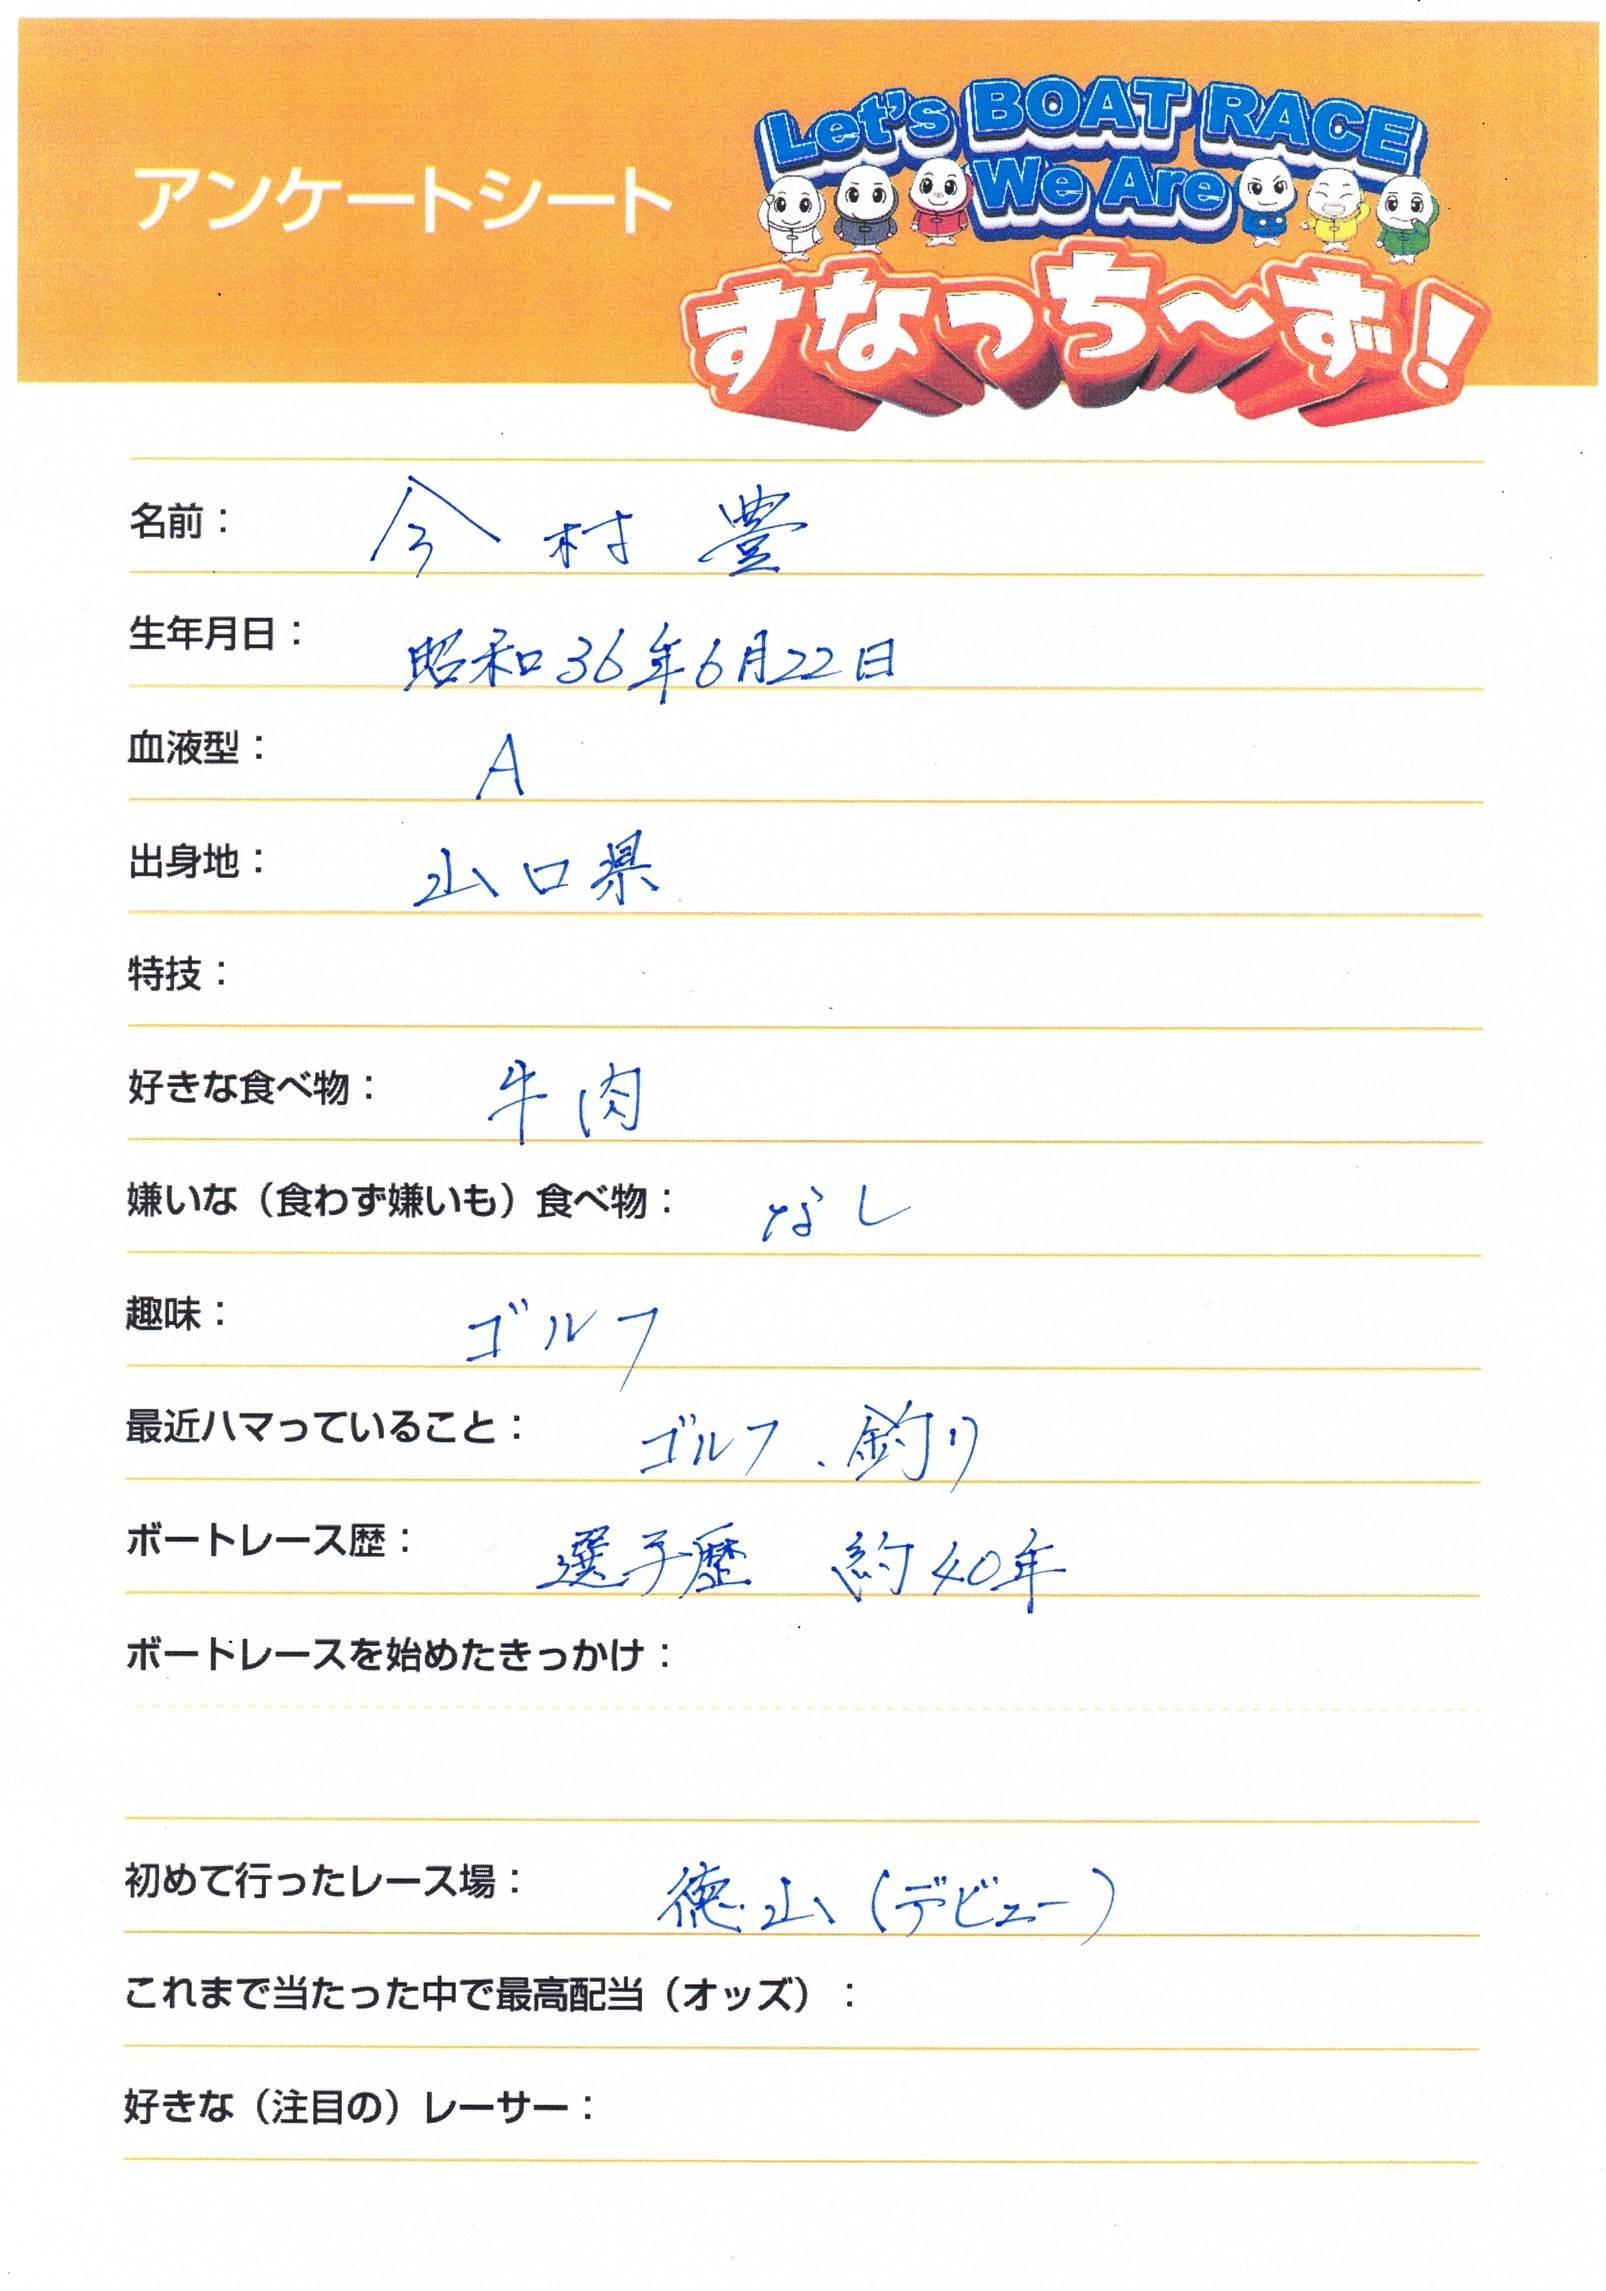 アンケートシート
Let's BOAT RACE
We Are
すなっち～ず！
名前： 今村 豊
生年月日： 昭和36年6月22日
血液型： A
出身地： 山口県
特技：
好きな食べ物： 牛肉
嫌いな（食わず嫌いも）食べ物： なし
趣味： ゴルフ
最近ハマっていること： ゴルフ、釣り
ボートレース歴： 選手歴 約40年
ボートレースを始めたきっかけ：
初めて行ったレース場： 徳山（デビュー）
これまで当たった中で最高配当（オッズ）：
好きな（注目の）レーサー：